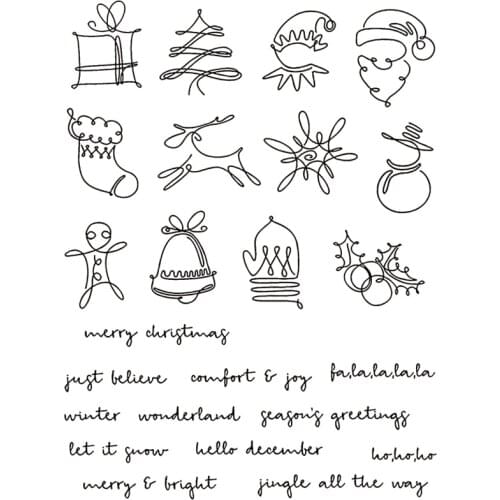 merry christmas
just believe comfort & joy fa,la,la,la,la
winter wonderland season's greetings
let it snow hello december ho,ho,ho
merry & bright jingle all the way